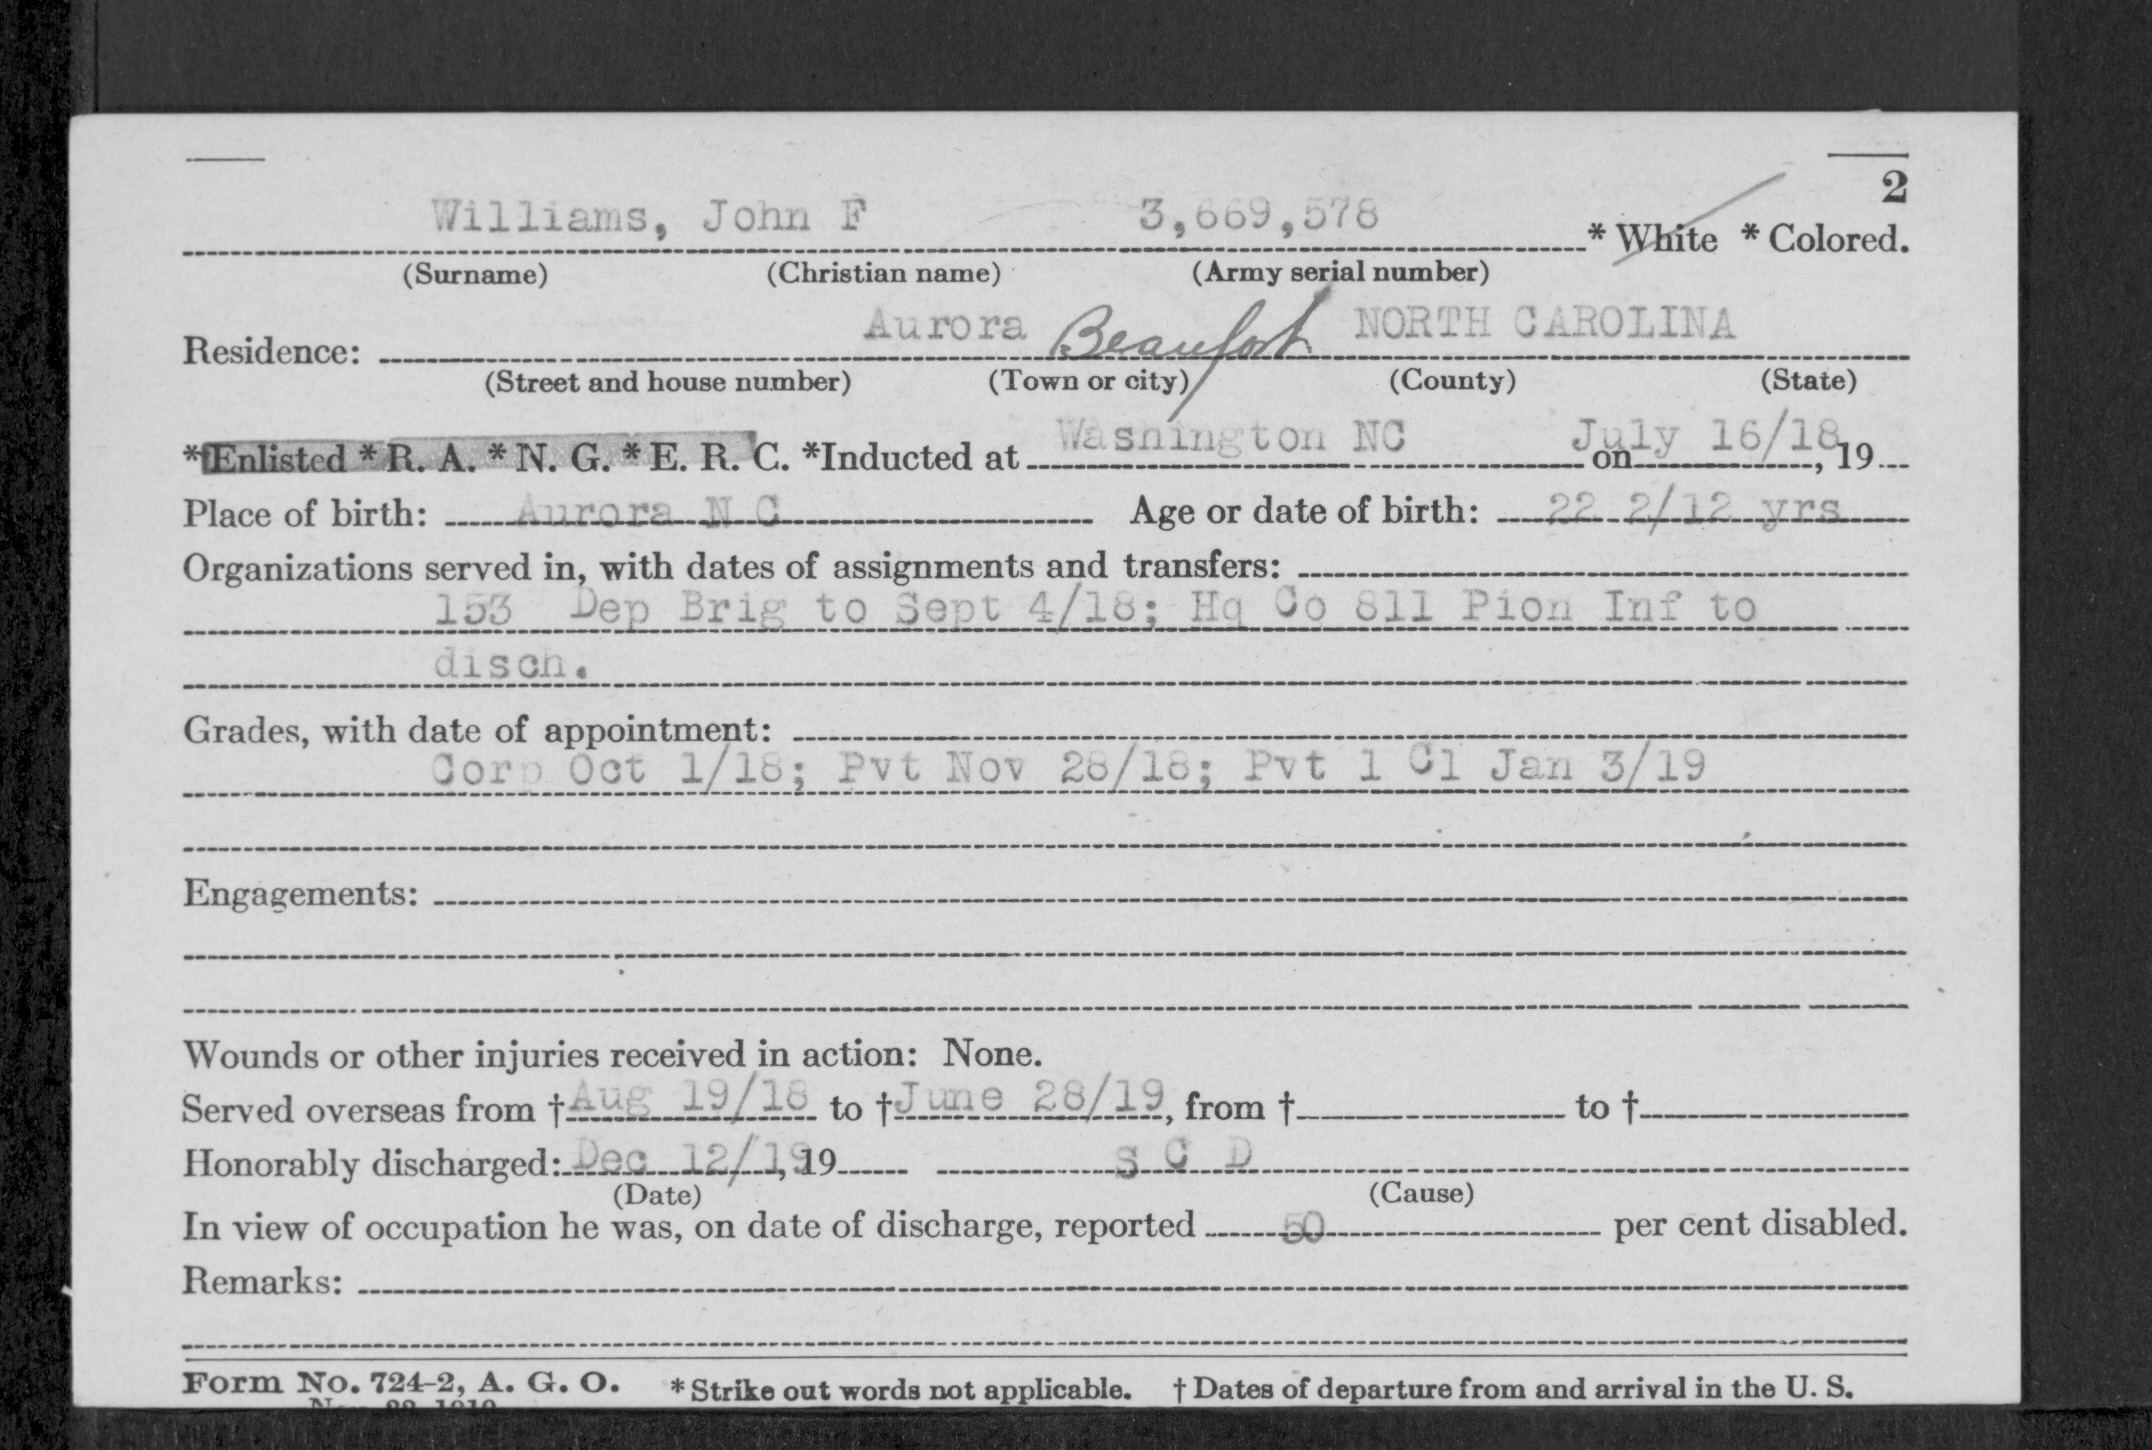 2
Williams, John F 3,669,578 * White * Colored.
(Surname) (Christian name) (Army serial number)
Residence: Aurora Beaufort NORTH CAROLINA
(Street and house number) (Town or city) (County) (State)
*Enlisted *R. A. *N. G. *E. R. C. *Inducted at Washington NC on July 16/18, 19
Place of birth: Aurora N C Age or date of birth: 22 2/12 yrs
Organizations served in, with dates of assignments and transfers:
153 Dep Brig to Sept 4/18; Hq Co 811 Pion Inf to
disch.
Grades, with date of appointment:
Corp Oct 1/18; Pvt Nov 28/18; Pvt 1 Cl Jan 3/19
Engagements:
Wounds or other injuries received in action: None.
Served overseas from † Aug 19/18 to † June 28/19, from † to †
Honorably discharged: Dec 12/19, 19 S C D
(Date) (Cause)
In view of occupation he was, on date of discharge, reported 50 per cent disabled.
Remarks:
Form No. 724-2, A. G. O. * Strike out words not applicable. † Dates of departure from and arrival in the U. S.